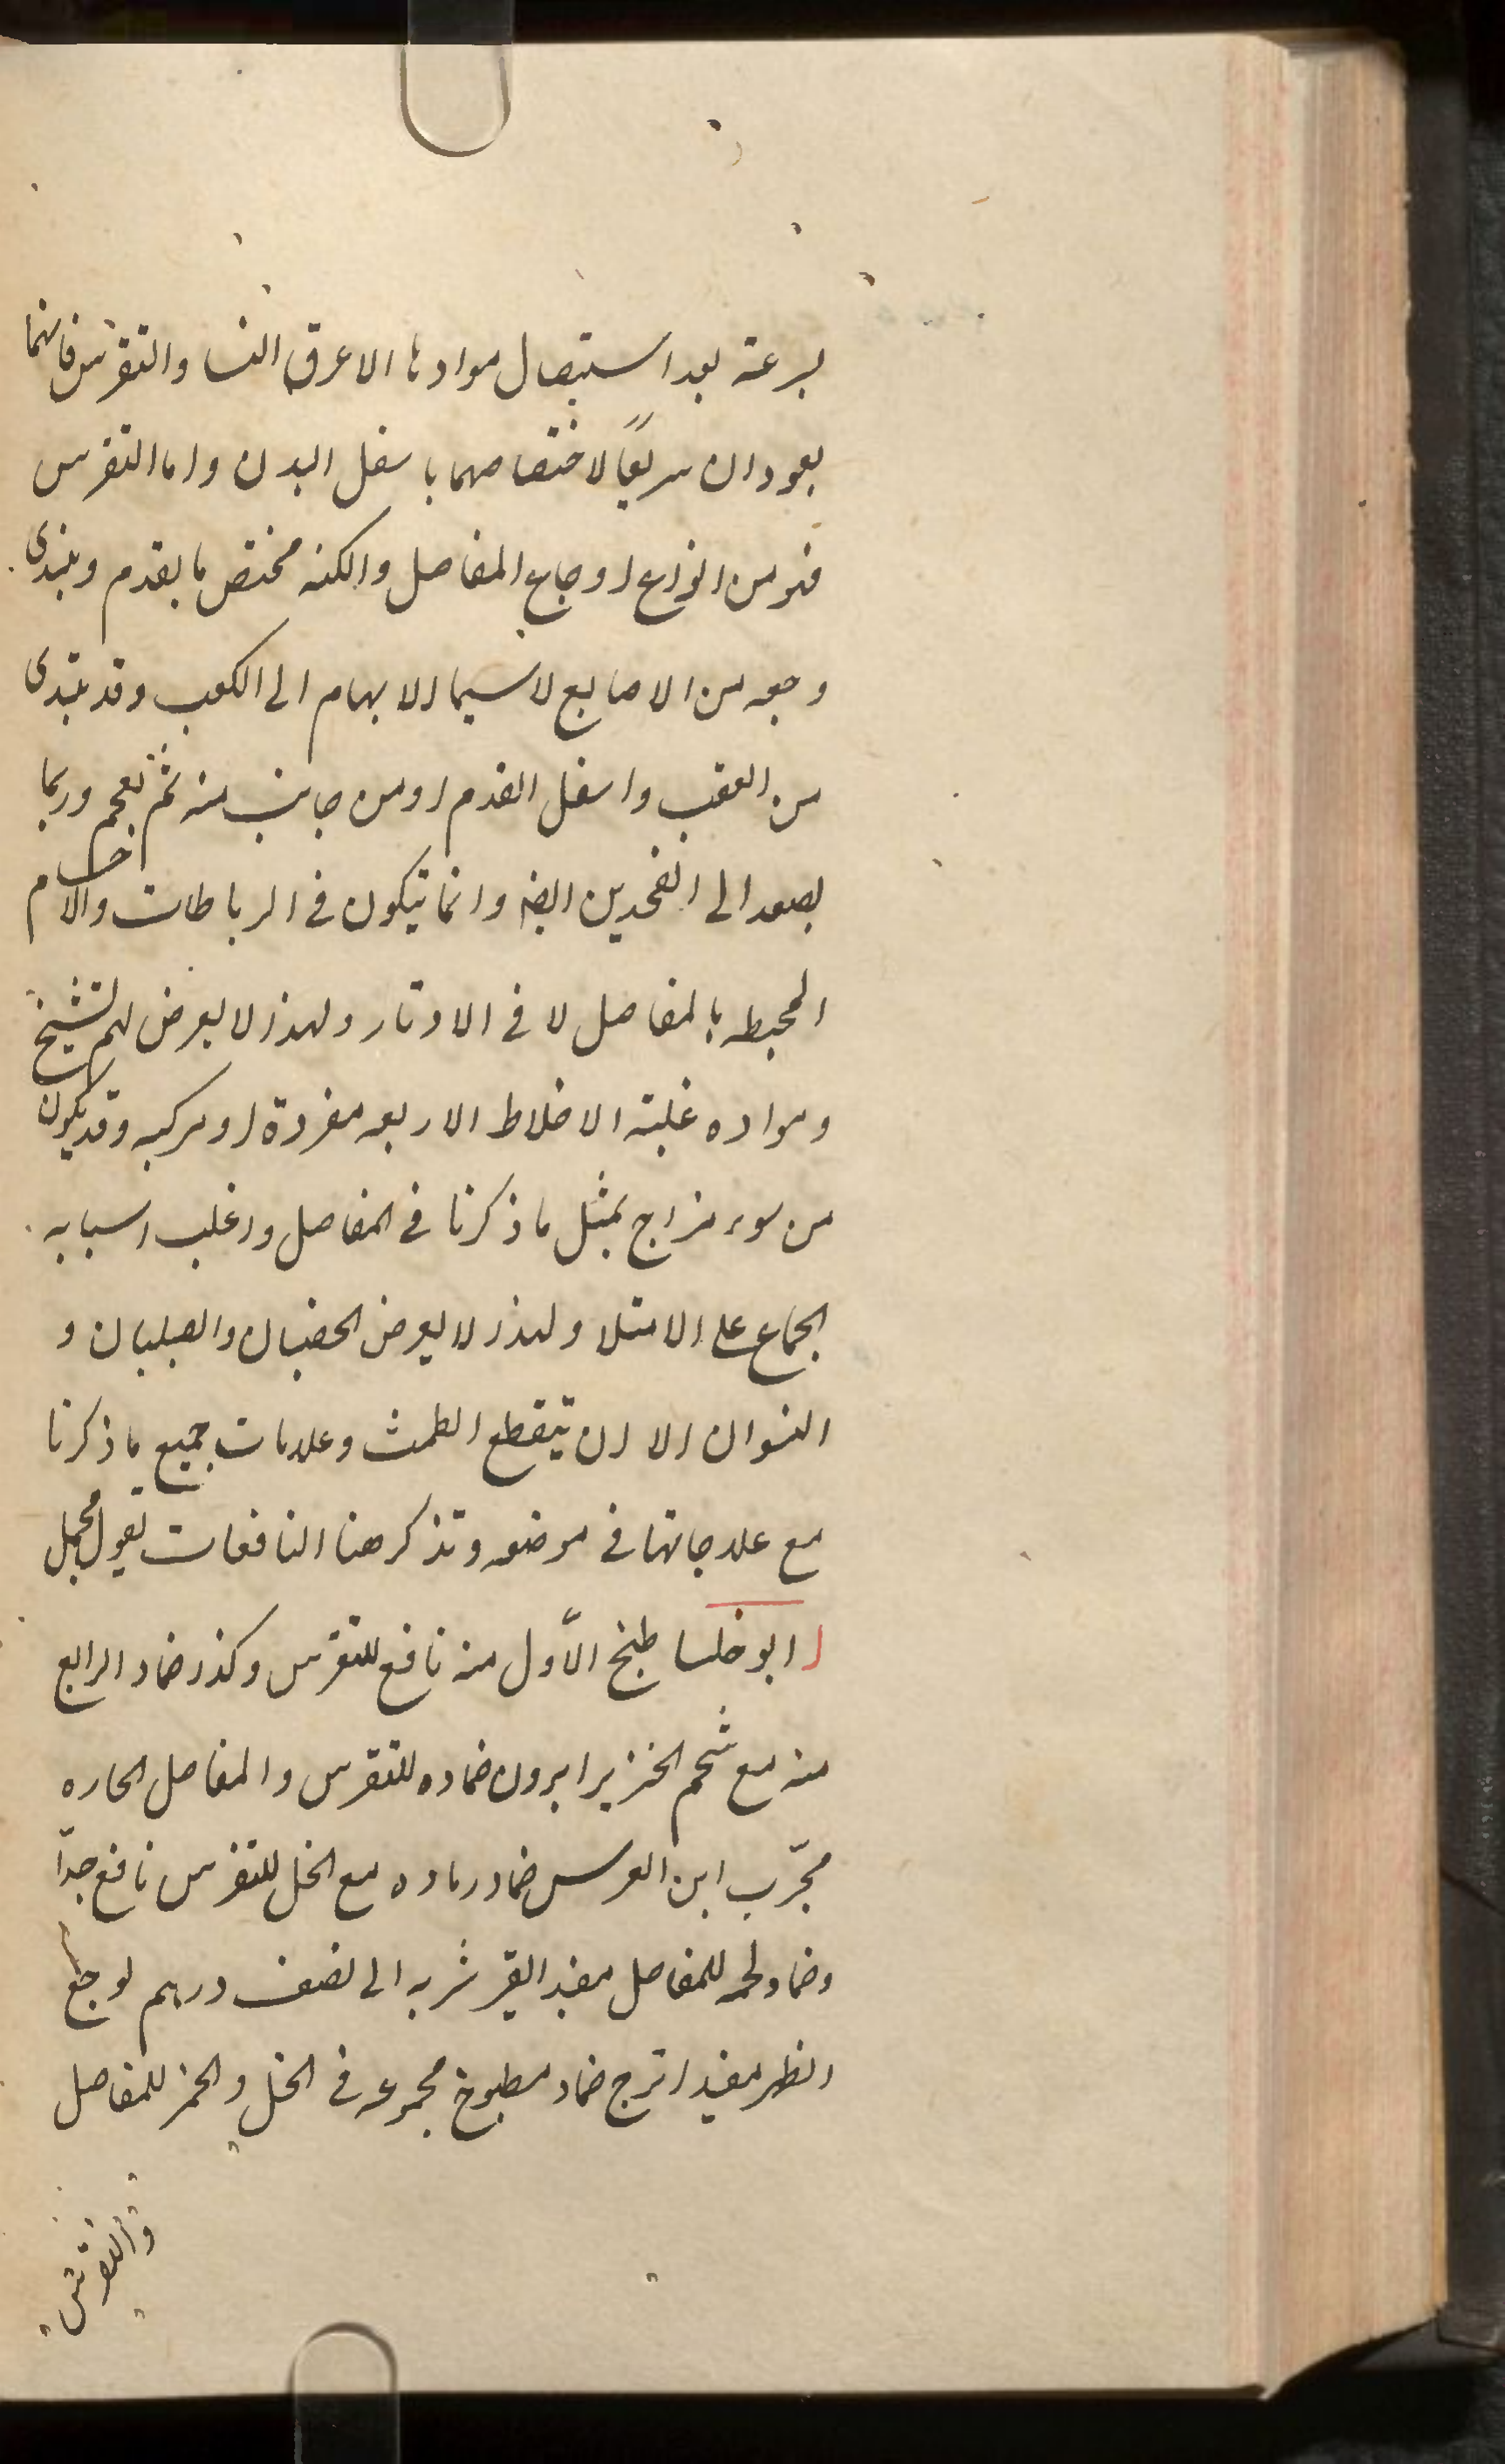 بسرعته بعد استیصال موادها الا عرق النسا والنقرس فانهما
یعودان سریعًا لاختصاصهما باسفل البدن واما النقرس
فهو من انواع اوجاع المفاصل والکنه مختص بالقدم ویبتدی
وجعه من الاصابع لاسیما الابهام الی الکعب وقد یبتدی
من العقب واسفل القدم او من جانب منه ثم یعم وربما
یصعد الی الفخدین ایضه وانما یتکون فی الرباطات والاجسام
المحیطه بالمفاصل لا فی الاوتار ولهذا لا یعرض لهم التشنج
ومواده غلبته الاخلاط الاربعه مفردة او مرکبه وقد یکون
من سوء مزاج بمثل ما ذکرنا فی المفاصل واغلب اسبابه
الجماع علی الامتلا ولهذا لا یعرض الخصیان والصبیان و
النسوان الا ان ینقطع الطمث وعلامات جمیع ما ذکرنا
مع علاجاتها فی موضعه ونذکر هنا النافعات بقول مجمل
ا ابوخلسا طبخ الاّول منه نافع للنقرس وکذا ضماد الرابع
منه مع شحم الخنزیر ابرون ضماده للنقرس والمفاصل الحاره
مجرّب ابن العرس ضماد رماده مع الخل للنقرس نافع جدّا
وضماد لحمه للمفاصل مفید القیر شربه الی نصف درهم لوجع
الظهر مفید اترج ضماد مطبوخ مجموعه فی الخل والخمر للمفاصل
والنقرس